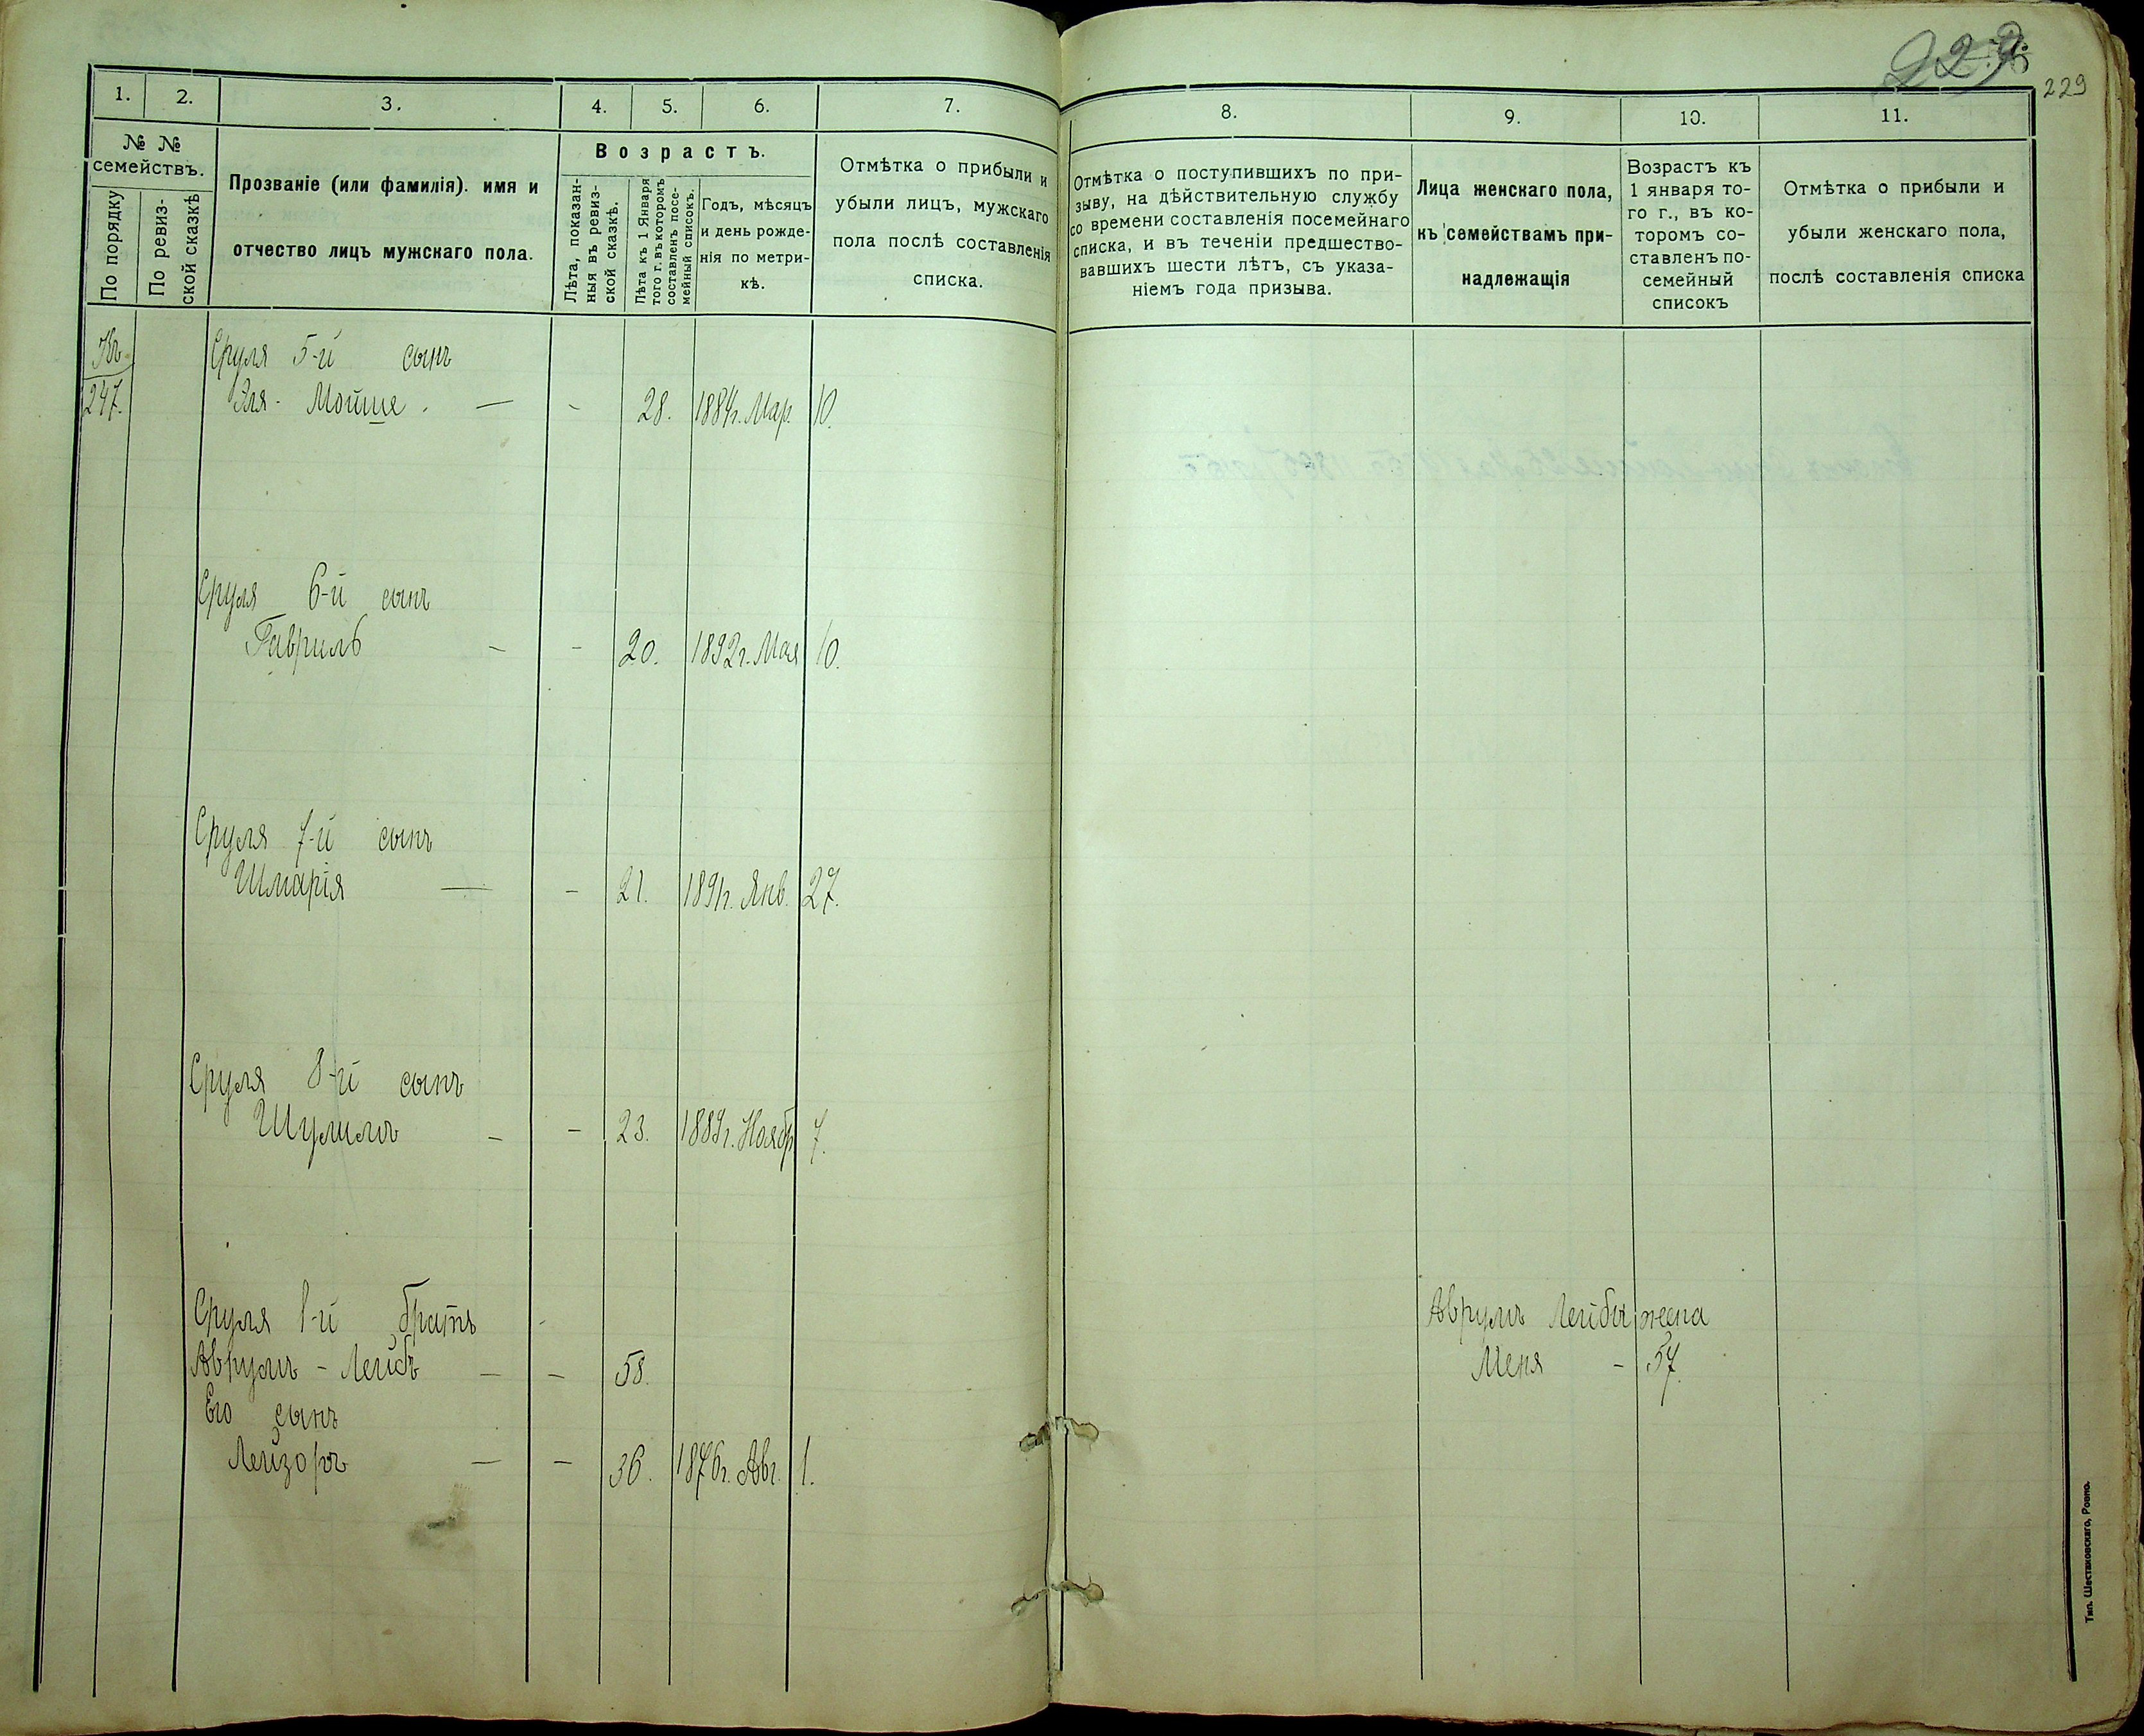 229
1. 2. 3. 4. 5. 6. 7.
№ № семействъ.
По порядку
По ревиз-
ской сказкѣ
Прозваніе (или фамилія). имя и
отчество лицъ мужскаго пола.
Возрастъ.
Лѣта, показан-
ныя въ ревиз-
ской сказкѣ.
Лѣта къ 1 Января
того г. въ которомъ
составленъ посе-
мейный списокъ.
Годъ, мѣсяцъ
и день рожде-
нія по метри-
кѣ.
Отмѣтка о прибыли и
убыли лицъ, мужскаго
пола послѣ составленія
списка.
Къ
247.
Сруля 5-й сынъ
Эля - Мойше. — - 28. 1884г. Мар. 10.
Сруля 6-й сынъ
Гавриль - - 20. 1892г. Мая 10.
Сруля 7-й сынъ
Шмарія — - 21. 1891г. Янв. 27.
Сруля 8-й сынъ
Шулимъ - - 23. 1889г. Ноябр 7.
Сруля 1-й братъ
Аврумъ - Лейбъ - - 58.
Его сынъ
Лейзоръ — - 36. 1876г. Авг. 1.
229
8. 9. 10. 11.
Отмѣтка о поступившихъ по при-
зыву, на дѣйствительную службу
со времени составленія посемейнаго
списка, и въ теченіи предшество-
вавшихъ шести лѣтъ, съ указа-
ніемъ года призыва.
Лица женскаго пола,
къ семействамъ при-
надлежащія
Возрастъ къ
1 января то-
го г., въ ко-
торомъ со-
ставленъ по-
семейный
списокъ
Отмѣтка о прибыли и
убыли женскаго пола,
послѣ составленія списка
Аврумъ Лейбы жена
Меня - 57.
Тип. Шестаковскаго, Ровно.